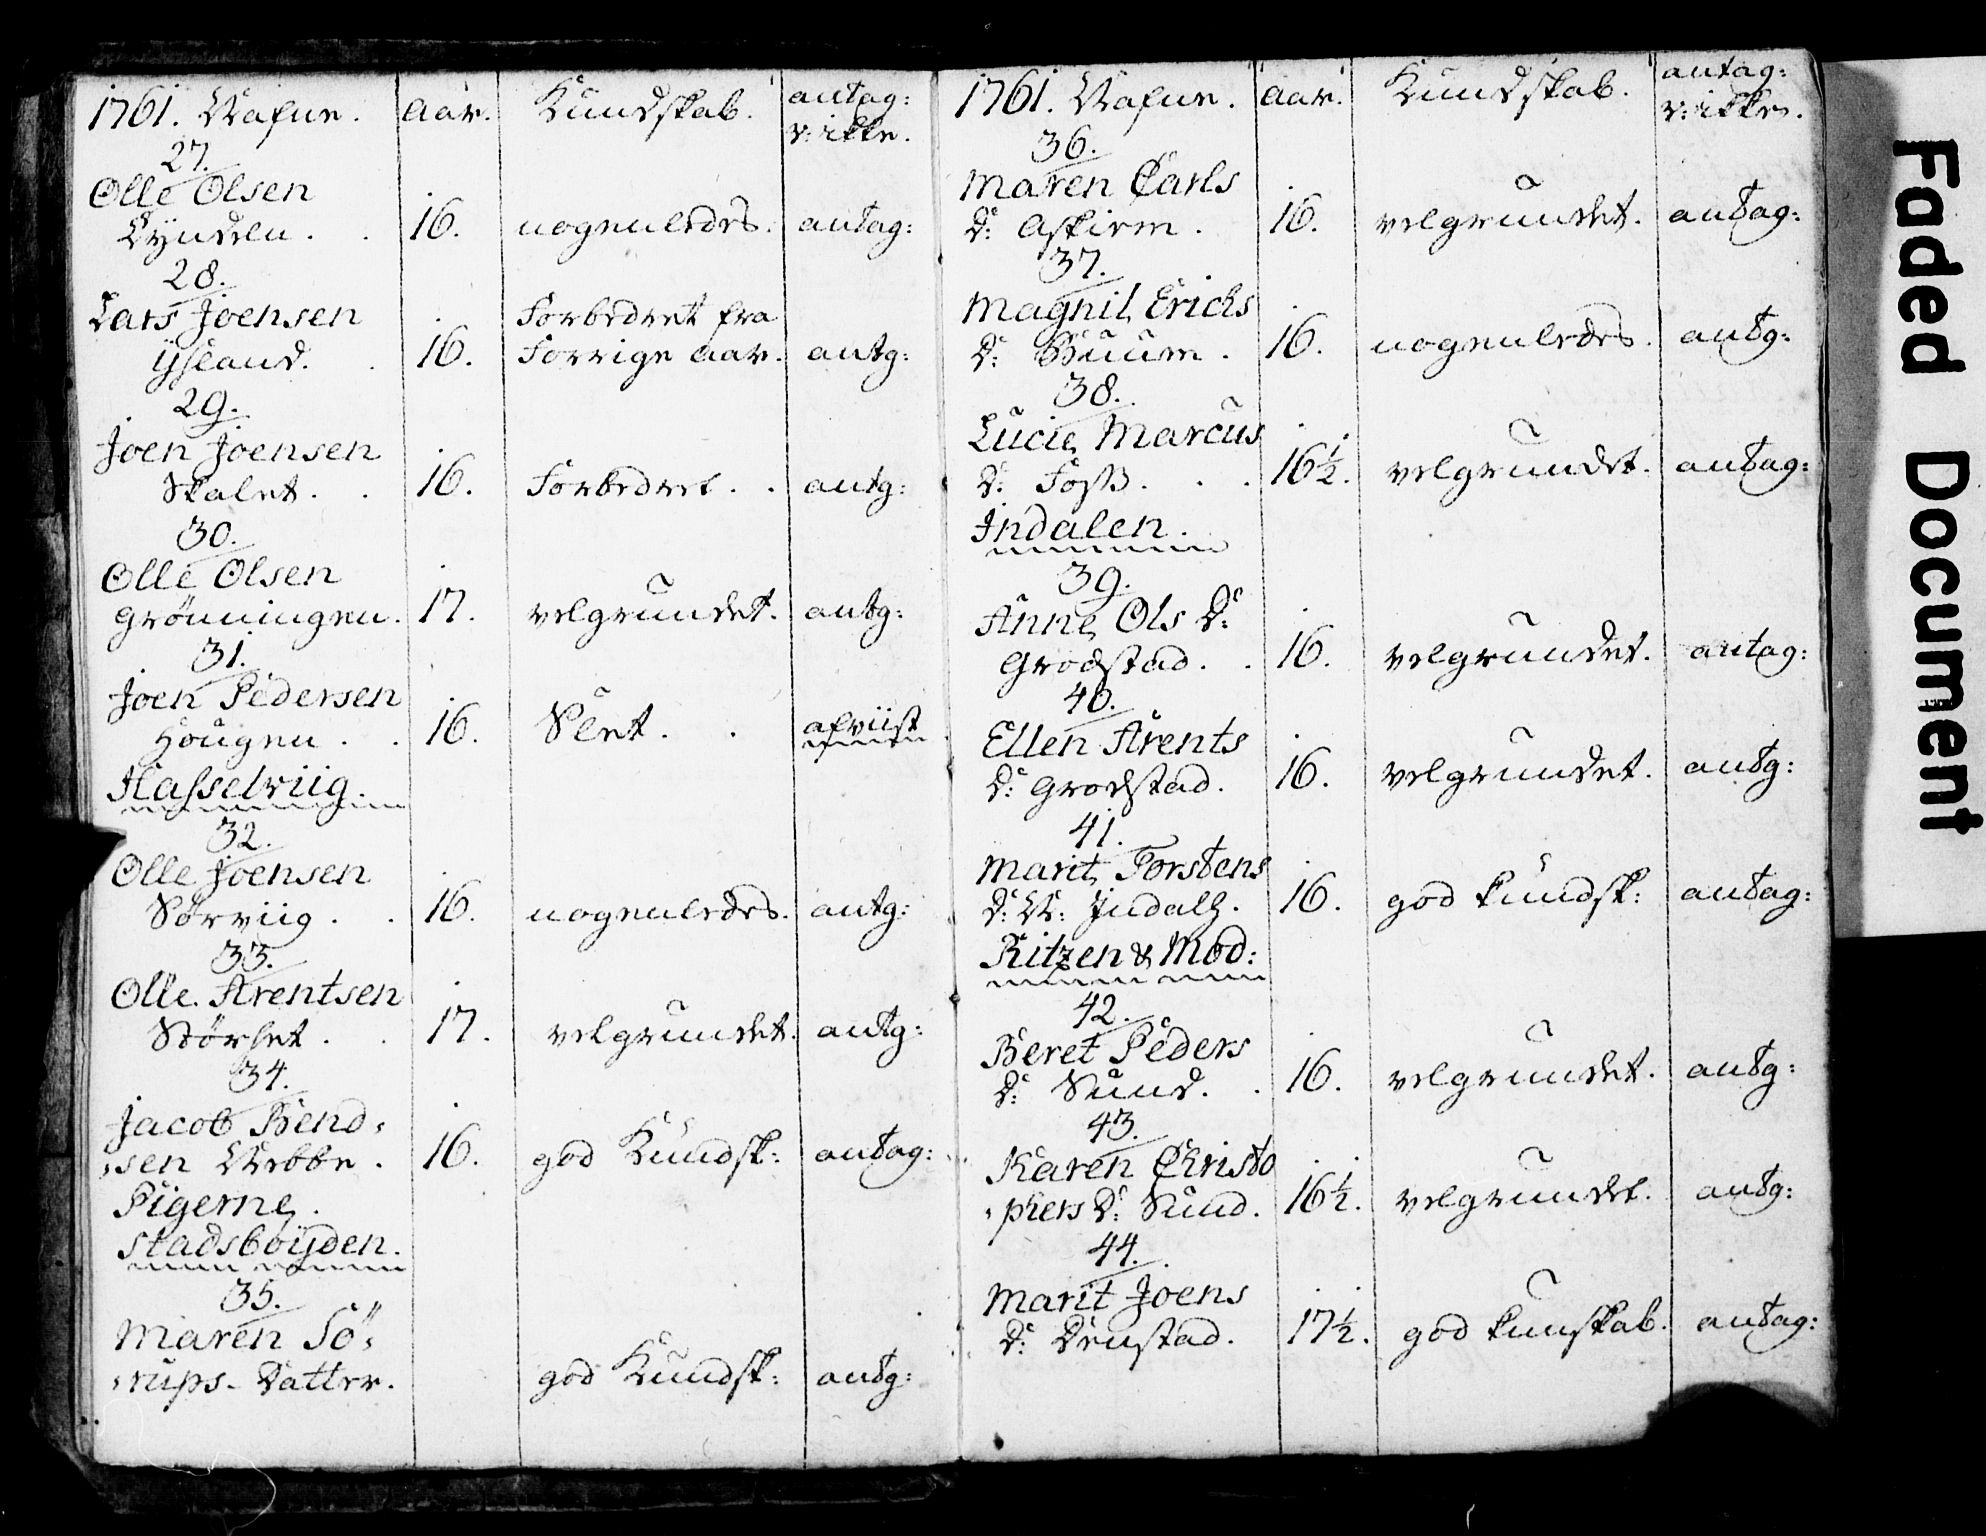 1761. Nafne. aar. Kundskab. antag:
e: ikke.
27.
Olle Olsen
Lynden. . 16. nogenledes. antag:
28.
Lars Joensen Forbedret fra
Ysland. . 16. Forrige aar. antg:
29.
Joen Joensen
Skalet. . 16. Forbedret. . antg:
30.
Olle Olsen
Grönningen. 17. velgrundet. antg:
31.
Joen Pedersen
Hougen. . 16. Slet. . afviist
Hasselviig.
32.
Olle Joensen
Sørviig. . 16. nogenledes. antg:
33.
Olle Arentsen
Størset. . 17. velgrundet. antg:
34.
Jacob Bend:
:sen Nebbe. 16. god Kundsk: antag:
Pigerne.
Stadsboÿden.
35.
Maren Sö:
:rups- Datter. god Kundsk: antg:
1761. Nafne. aar. Kundskab. antag:
e: ikke.
36.
Maren Carls
D: Askiem. 16. velgrundet. antag:
37.
Magnil Erichs
D: Buum. 16. nogenledes. antg:
38.
Lucie Marcus
D: Foss. . . 16½. velgrundet. antag:
Indalen.
39.
Anne Ols D:
Grodstad. . 16. velgrundet. antag:
40.
Ellen Arents
D: Grodstad. 16. velgrundet. antg:
41.
Marit Torstens
D: N: Indahl. 16. god kundsk: antag:
Ritzen & Mod:
42.
Beret Peders
D: Sund. . 16. velgrundet. antg:
43.
Karen Christo
:phers D: Sund. 16½. velgrundet. antg:
44.
Marit Joens
D: Denstad. 17½. god kunskab. antag:
Faded Document